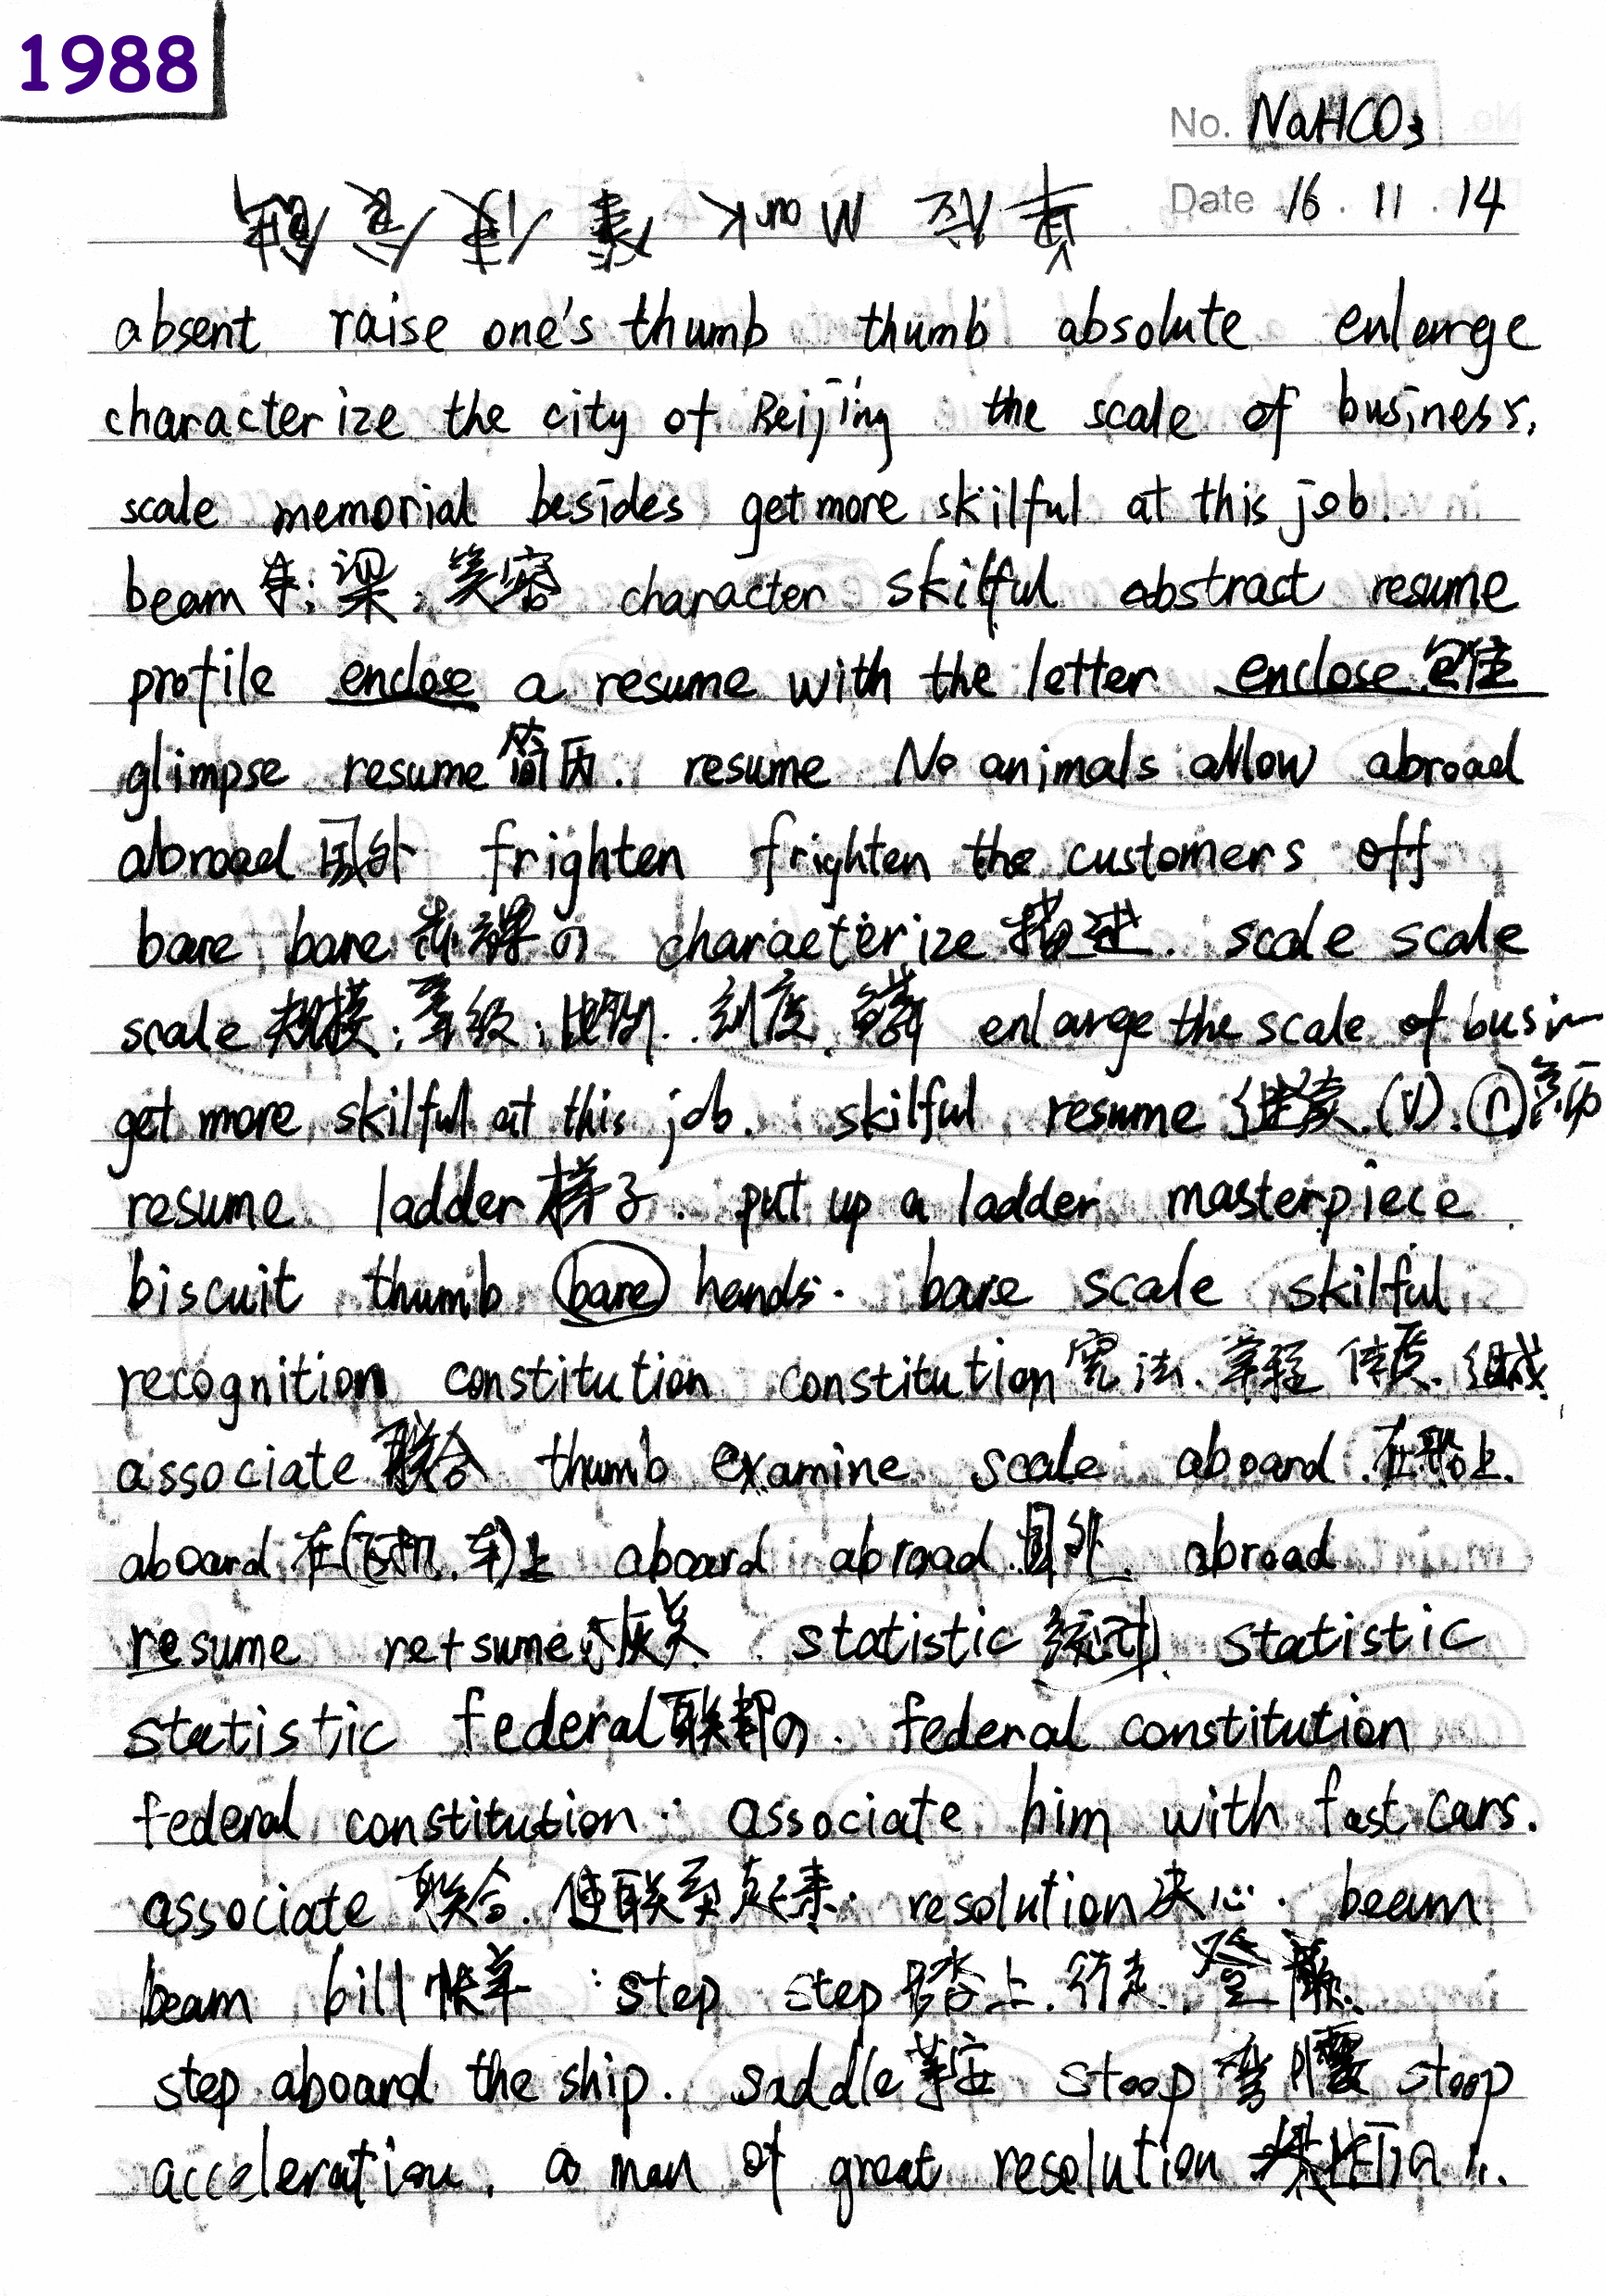 1988
No. NaHCO3
Date 16. 11. 14
absent raise one's thumb thumb absolute enlarge
characterize the city of Beijing the scale of business.
scale memorial besides get more skilful at this job.
beam 束; 梁; 笑容 character skilful abstract resume
profile enclose a resume with the letter enclose 包住
glimpse resume 简历. resume No animals allow abroad
abroad 国外 frighten frighten the customers off
bare bare 赤裸の characterize 描述. scale scale
scale 规模; 等级; 比例. 刻度. enlarge the scale of busin
get more skilful at this job. skilful resume 继续 (v). (n)
resume ladder 梯子. put up a ladder masterpiece
biscuit thumb bare hands. bare scale skilful
recognition constitution constitution 宪法. 章程 体质. 组成.
associate 联合 thumb examine scale aboard 在船上.
aboard 在(飞机. 车)上 aboard abroad 国外. abroad
resume re+sume 恢复 statistic 统计. statistic
statistic federal 联邦の. federal constitution
federal constitution. associate him with fast cars.
associate 联合. 使联系起来. resolution 决心. beam
beam bill 账单 step step 踏上. 行走. 登
step aboard the ship. saddle 鞍 stoop 弯腰 stoop
acceleration. a man of great resolution